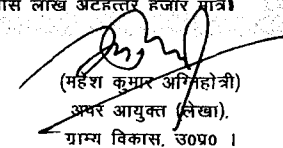 लाख अटहत्तर हजार मात्र।
(महेश कुमार अग्निहोत्री)
अपर आयुक्त (लेखा),
ग्राम्य विकास, उ०प्र० ।